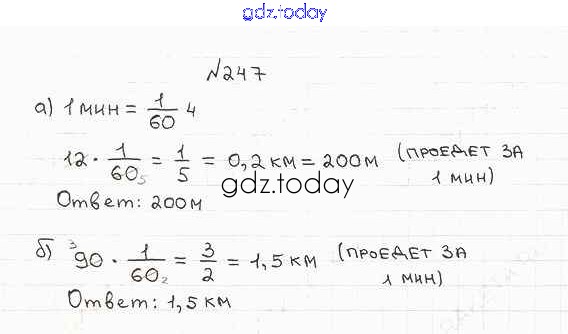 gdz.today
№247
а) 1 мин = 1/60 ч
12 · 1/60 5 = 1/5 = 0,2 км = 200 м (ПРОЕДЕТ ЗА
1 МИН)
gdz.today
Ответ: 200 м
б) 3 90 · 1/60 2 = 3/2 = 1,5 км (ПРОЕДЕТ ЗА
1 МИН)
Ответ: 1,5 км